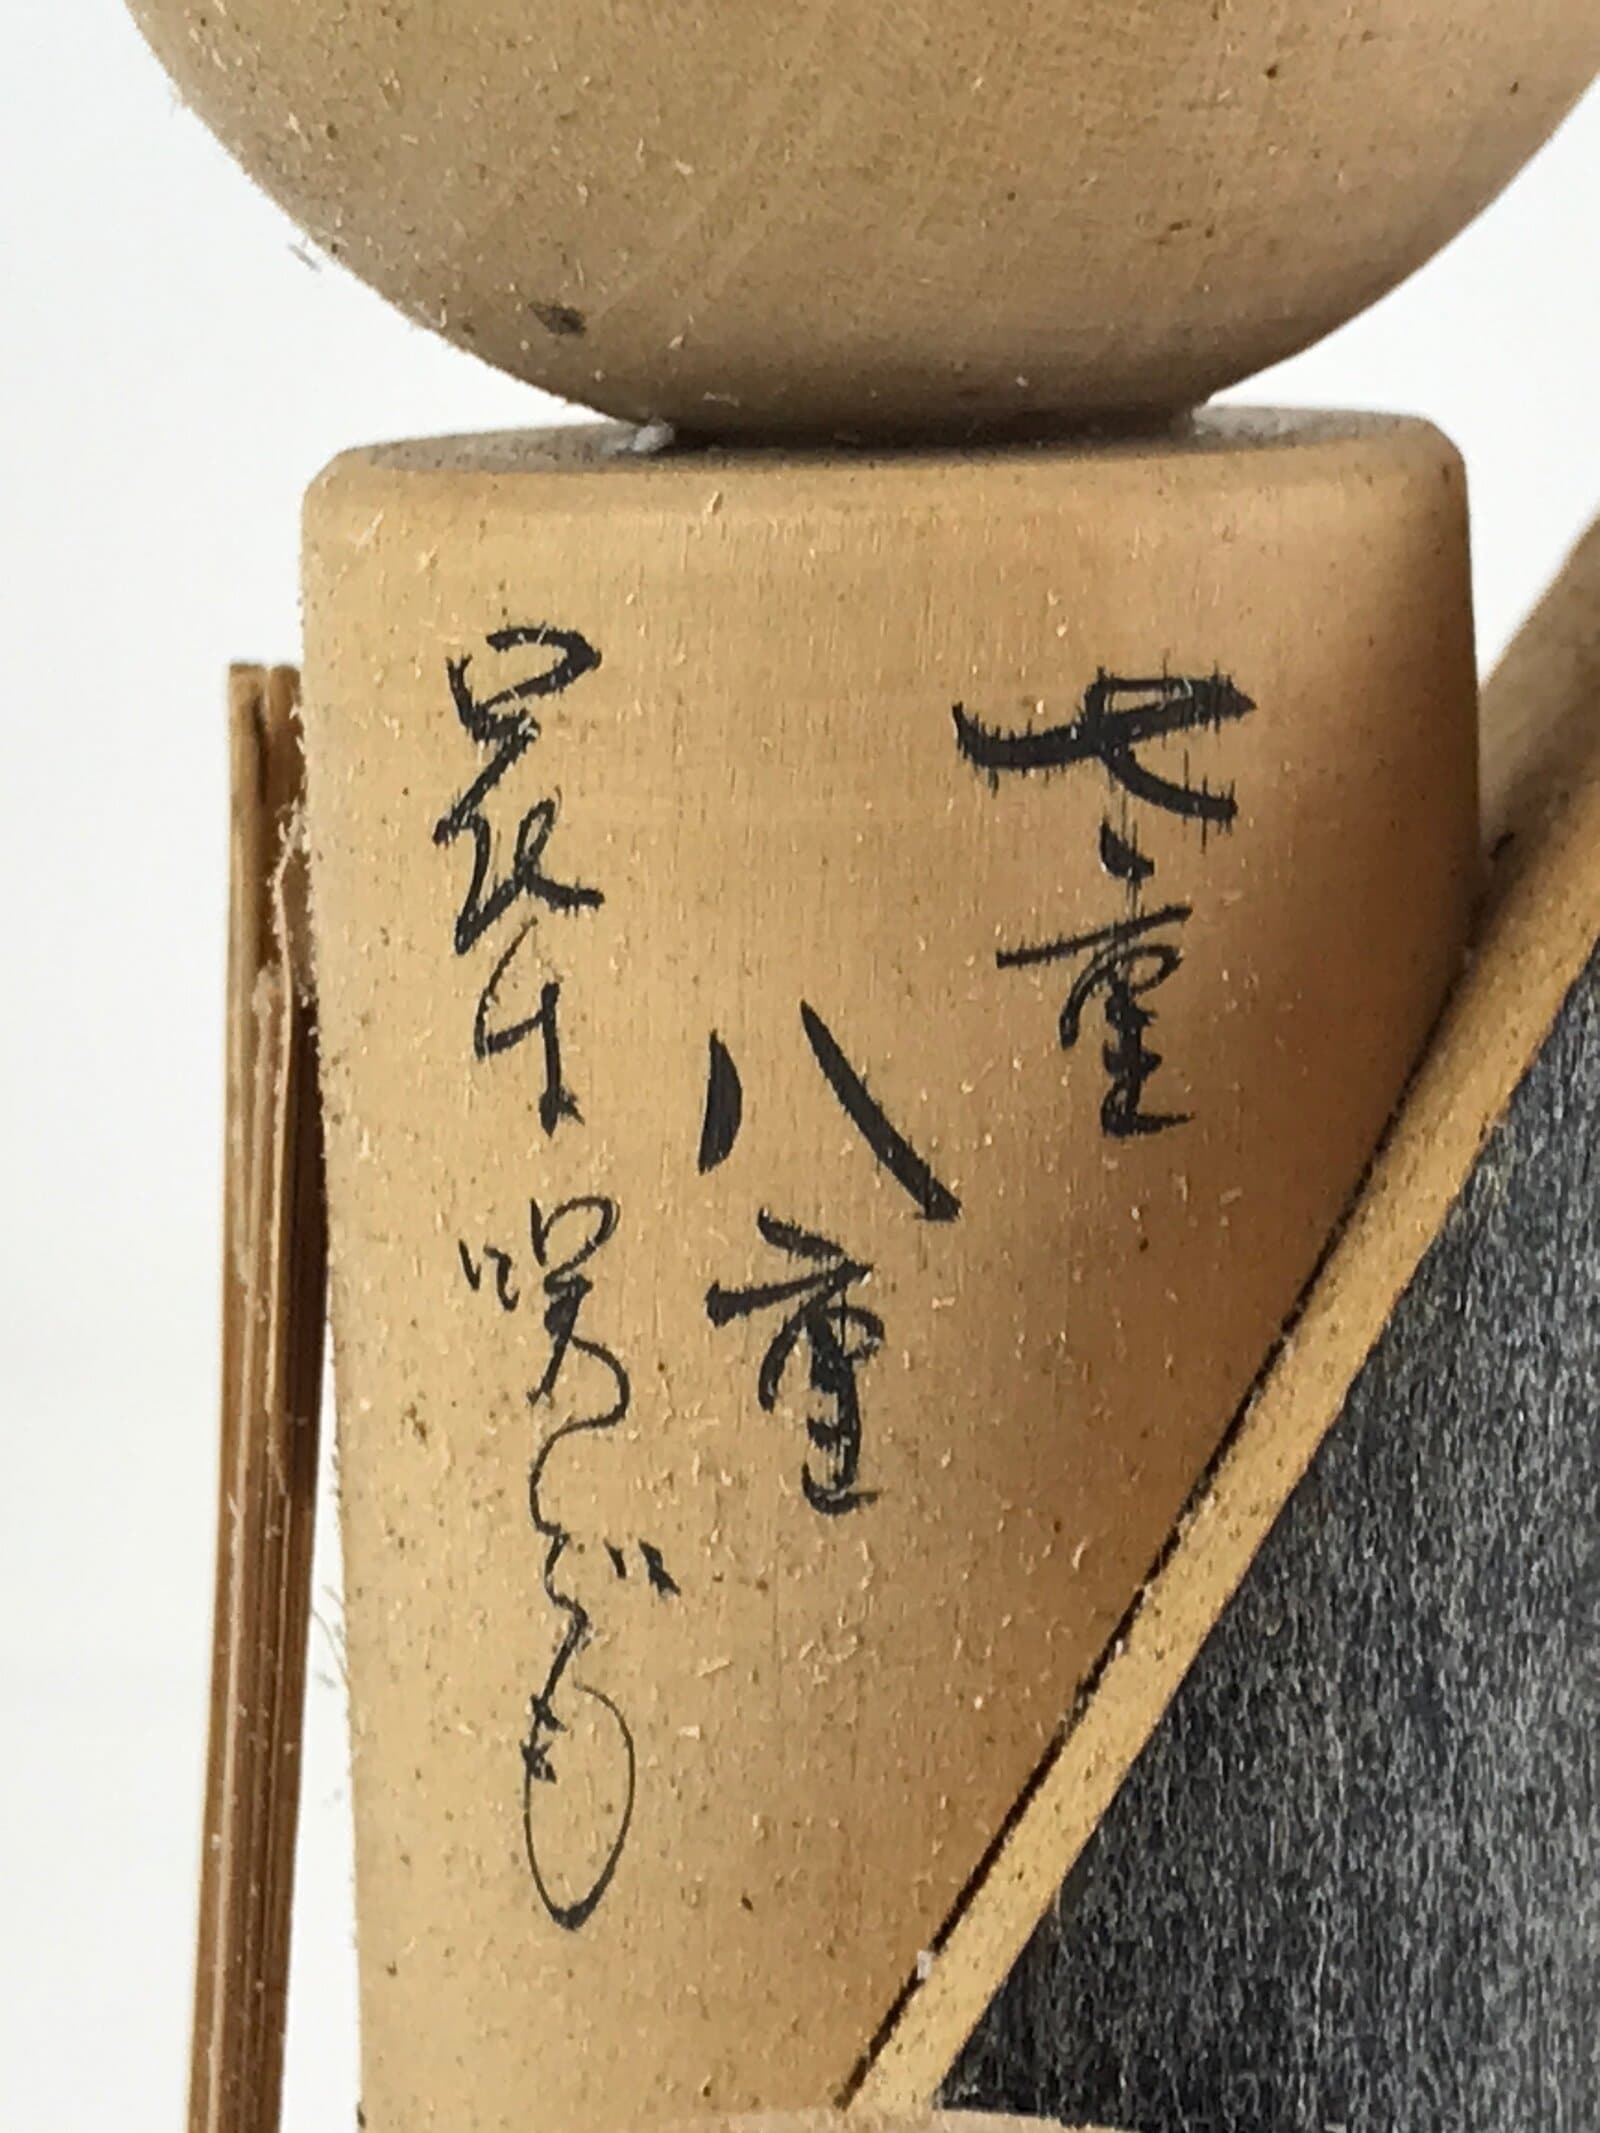 七重
八重
花は咲けども